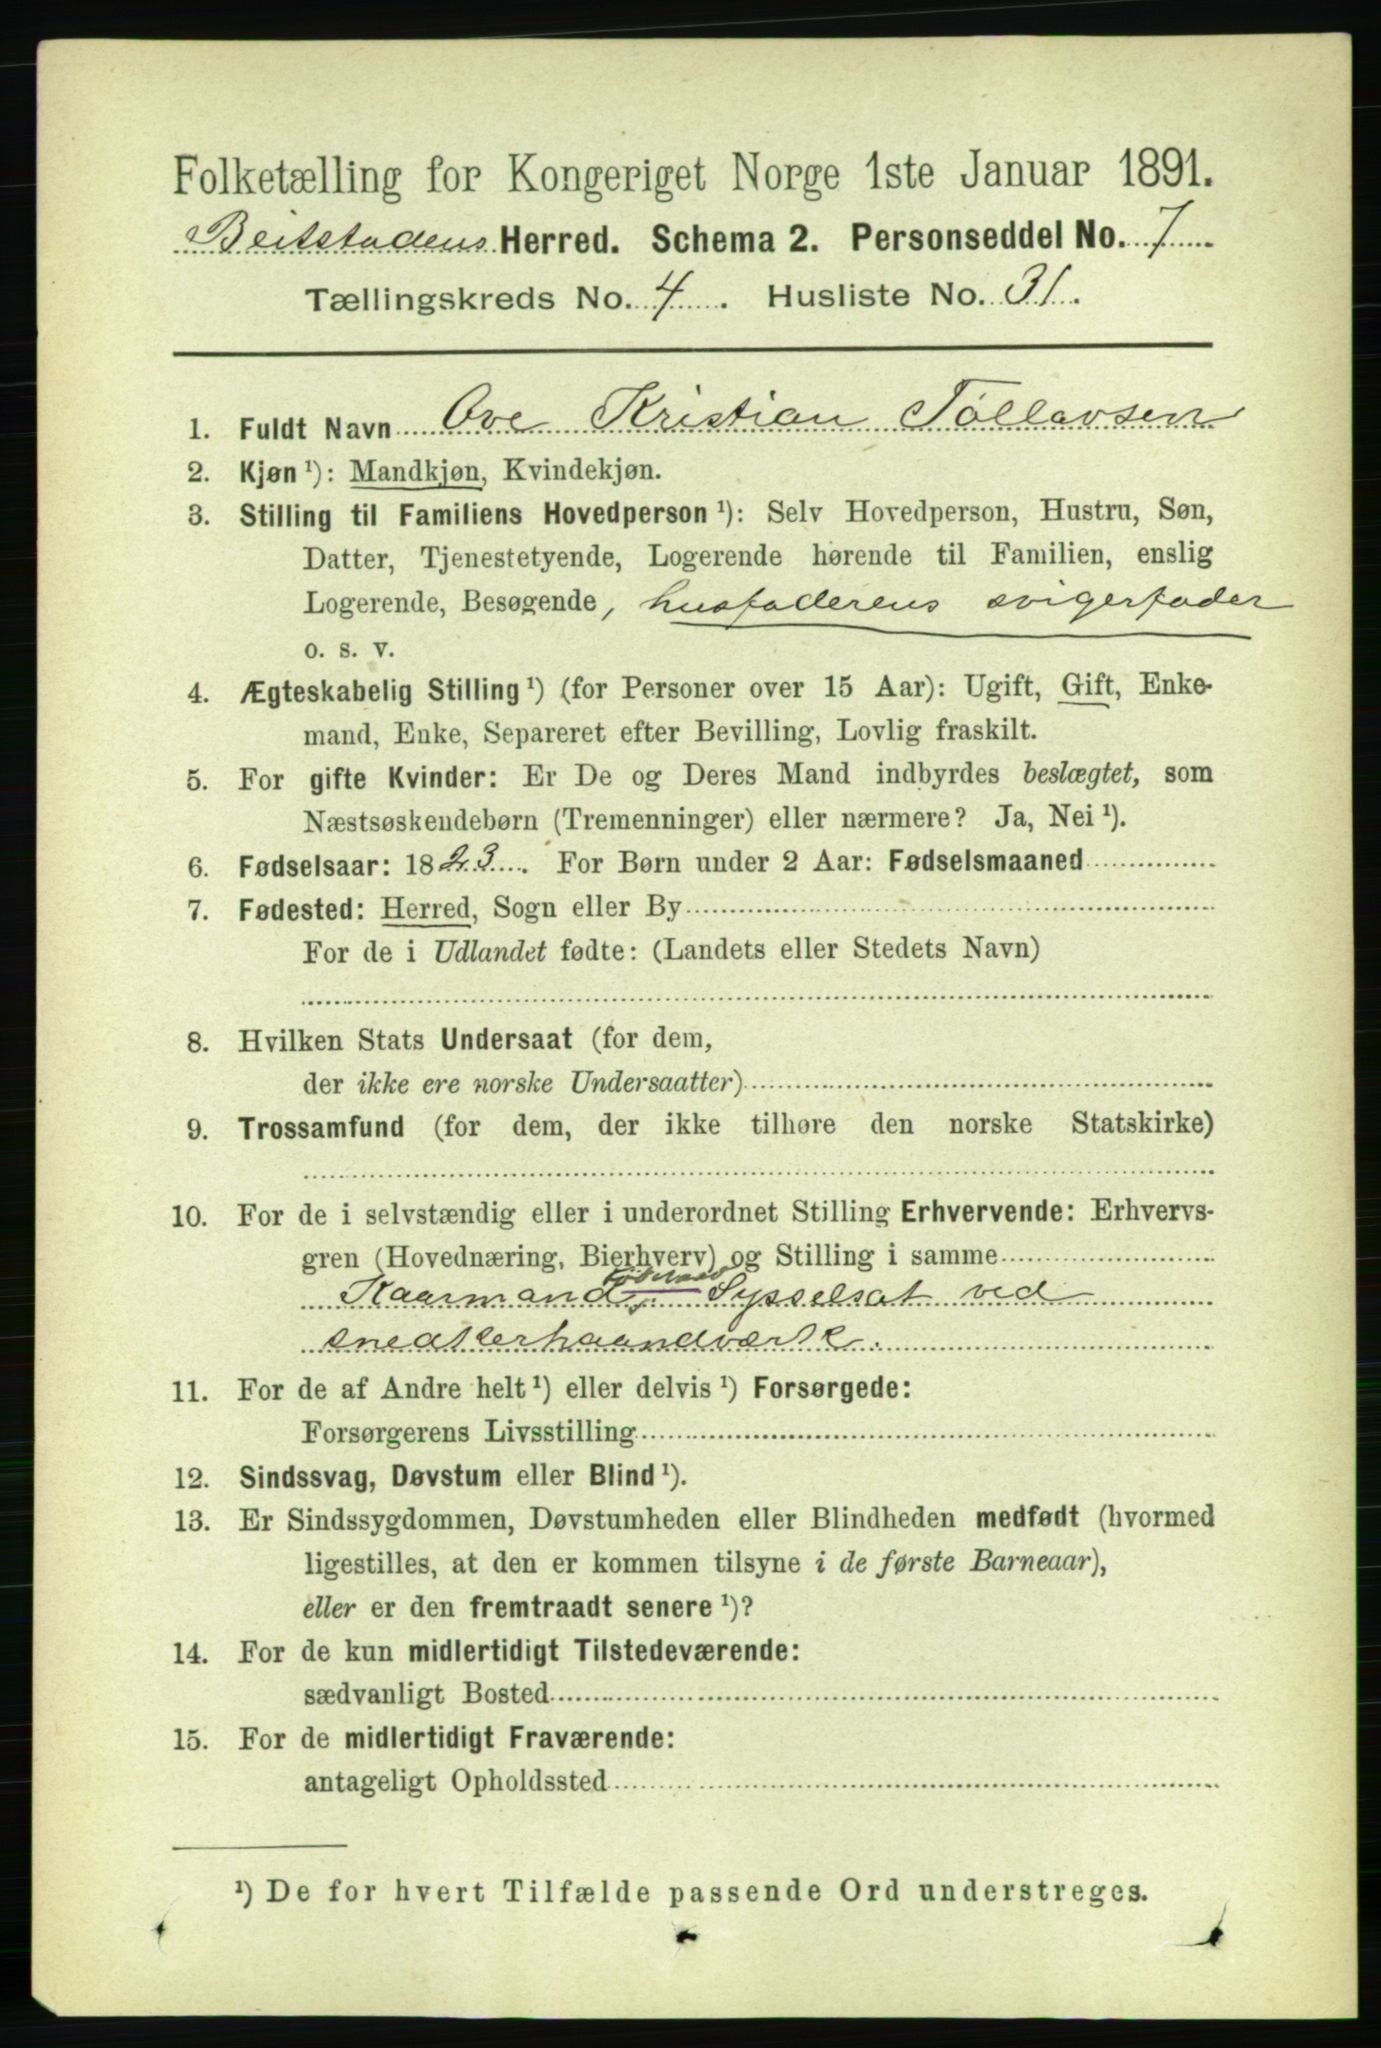 Folketælling for Kongeriget Norge 1ste Januar 1891.
Beitstadens Herred. Schema 2. Personseddel No. 7
Tællingskreds No. 4. Husliste No. 31.
1. Fuldt Navn Ove Kristian Tollavsen
2. Kjøn ¹): Mandkjøn, Kvindekjøn.
3. Stilling til Familiens Hovedperson ¹): Selv Hovedperson, Hustru, Søn,
Datter, Tjenestetyende, Logerende hørende til Familien, enslig
Logerende, Besøgende, husfaderens svigerfader
o. s. v.
4. Ægteskabelig Stilling ¹) (for Personer over 15 Aar): Ugift, Gift, Enke-
mand, Enke, Separeret efter Bevilling, Lovlig fraskilt.
5. For gifte Kvinder: Er De og Deres Mand indbyrdes beslægtet, som
Næstsøskendebørn (Tremenninger) eller nærmere? Ja, Nei ¹).
6. Fødselsaar: 1823. For Børn under 2 Aar: Fødselsmaaned
7. Fødested: Herred, Sogn eller By
For de i Udlandet fødte: (Landets eller Stedets Navn)
8. Hvilken Stats Undersaat (for dem,
der ikke ere norske Undersaatter)
9. Trossamfund (for dem, der ikke tilhøre den norske Statskirke)
10. For de i selvstændig eller i underordnet Stilling Erhvervende: Erhvervs-
gren (Hovednæring, Bierhverv) og Stilling i samme
Kaarmand, Sysselsat ved
snedkerhaandværk.
11. For de af Andre helt ¹) eller delvis ¹) Forsørgede:
Forsørgerens Livsstilling
12. Sindssvag, Døvstum eller Blind ¹).
13. Er Sindssygdommen, Døvstumheden eller Blindheden medfødt (hvormed
ligestilles, at den er kommen tilsyne i de første Barneaar),
eller er den fremtraadt senere ¹)?
14. For de kun midlertidigt Tilstedeværende:
sædvanligt Bosted
15. For de midlertidigt Fraværende:
antageligt Opholdssted
¹) De for hvert Tilfælde passende Ord understreges.